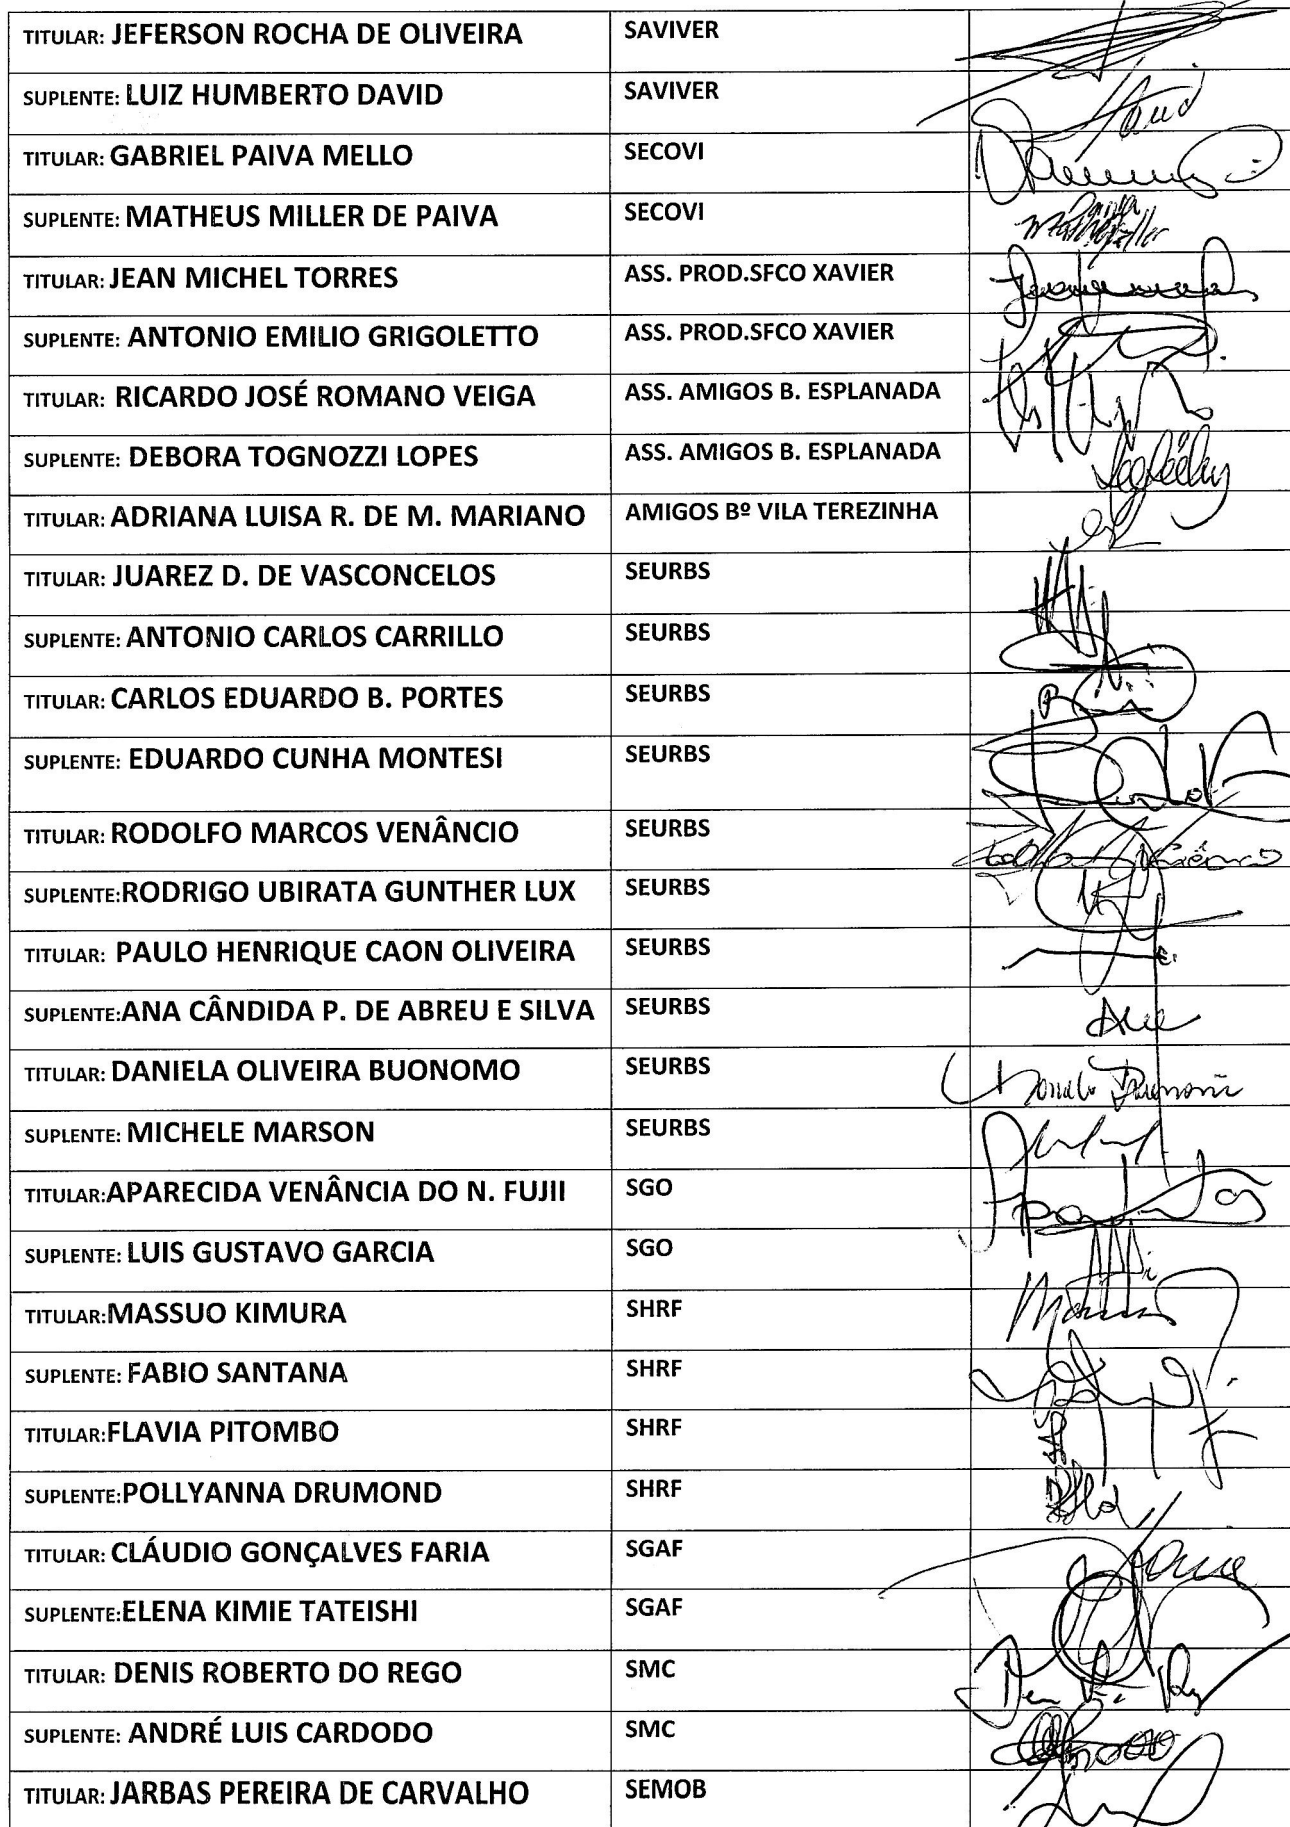 TITULAR: JEFERSON ROCHA DE OLIVEIRA SAVIVER
SUPLENTE: LUIZ HUMBERTO DAVID SAVIVER
TITULAR: GABRIEL PAIVA MELLO SECOVI
SUPLENTE: MATHEUS MILLER DE PAIVA SECOVI
TITULAR: JEAN MICHEL TORRES ASS. PROD.SFCO XAVIER
SUPLENTE: ANTONIO EMILIO GRIGOLETTO ASS. PROD.SFCO XAVIER
TITULAR: RICARDO JOSÉ ROMANO VEIGA ASS. AMIGOS B. ESPLANADA
SUPLENTE: DEBORA TOGNOZZI LOPES ASS. AMIGOS B. ESPLANADA
TITULAR: ADRIANA LUISA R. DE M. MARIANO AMIGOS Bº VILA TEREZINHA
TITULAR: JUAREZ D. DE VASCONCELOS SEURBS
SUPLENTE: ANTONIO CARLOS CARRILLO SEURBS
TITULAR: CARLOS EDUARDO B. PORTES SEURBS
SUPLENTE: EDUARDO CUNHA MONTESI SEURBS
TITULAR: RODOLFO MARCOS VENÂNCIO SEURBS
SUPLENTE:RODRIGO UBIRATA GUNTHER LUX SEURBS
TITULAR: PAULO HENRIQUE CAON OLIVEIRA SEURBS
SUPLENTE:ANA CÂNDIDA P. DE ABREU E SILVA SEURBS
TITULAR: DANIELA OLIVEIRA BUONOMO SEURBS
SUPLENTE: MICHELE MARSON SEURBS
TITULAR:APARECIDA VENÂNCIA DO N. FUJII SGO
SUPLENTE: LUIS GUSTAVO GARCIA SGO
TITULAR:MASSUO KIMURA SHRF
SUPLENTE: FABIO SANTANA SHRF
TITULAR:FLAVIA PITOMBO SHRF
SUPLENTE:POLLYANNA DRUMOND SHRF
TITULAR: CLÁUDIO GONÇALVES FARIA SGAF
SUPLENTE:ELENA KIMIE TATEISHI SGAF
TITULAR: DENIS ROBERTO DO REGO SMC
SUPLENTE: ANDRÉ LUIS CARDODO SMC
TITULAR: JARBAS PEREIRA DE CARVALHO SEMOB